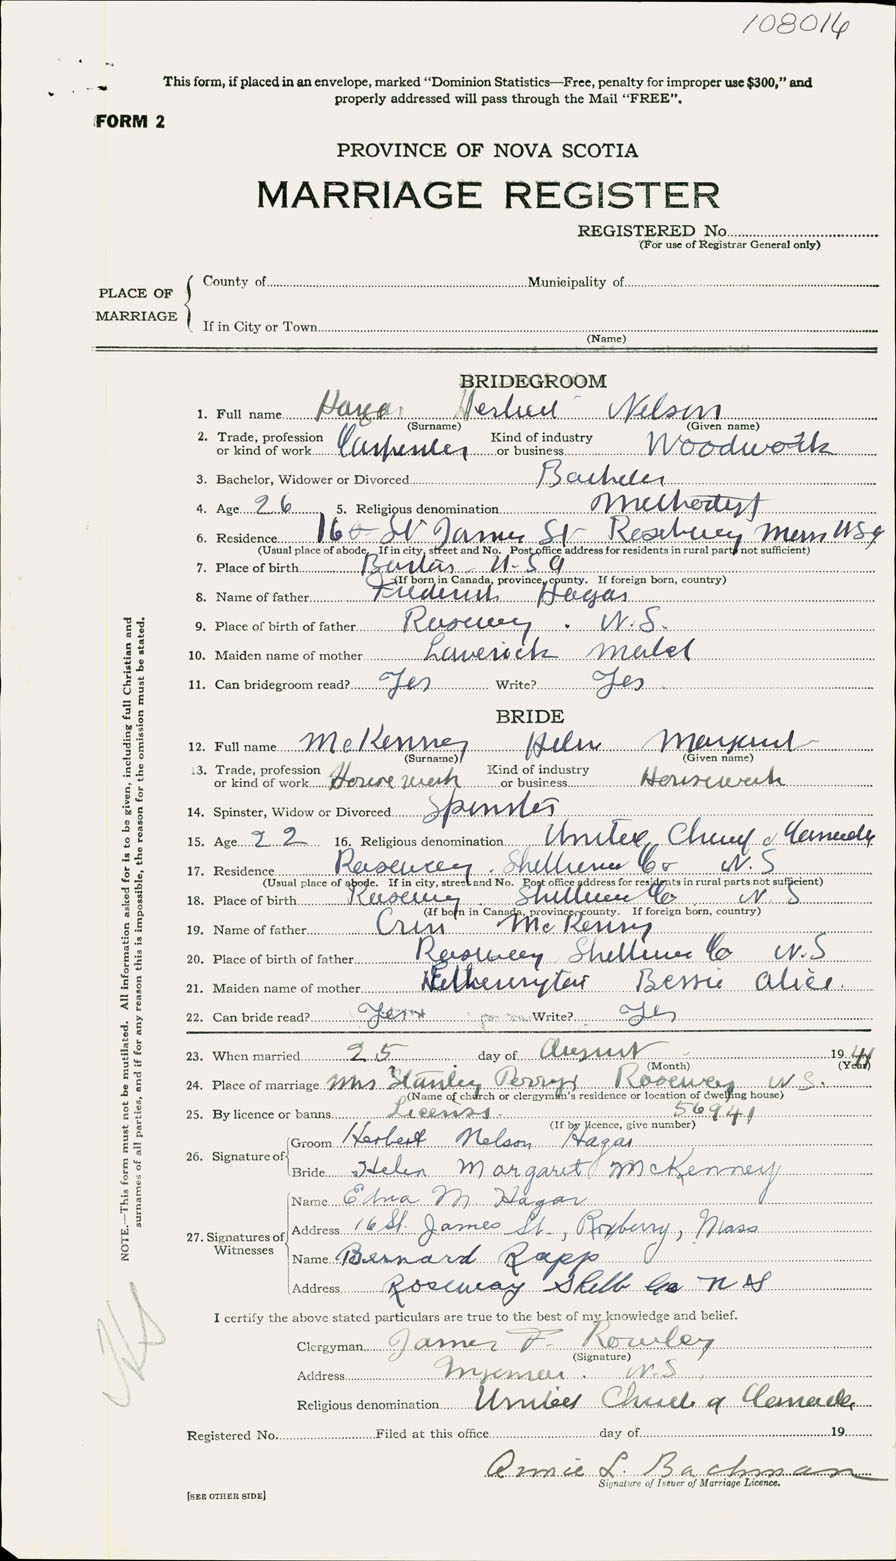 108016
This form, if placed in an envelope, marked “Dominion Statistics—Free, penalty for improper use $300,” and
properly addressed will pass through the Mail “FREE”.
FORM 2
PROVINCE OF NOVA SCOTIA
MARRIAGE REGISTER
REGISTERED No.
(For use of Registrar General only)
PLACE OF MARRIAGE
County of Municipality of
If in City or Town
(Name)
BRIDEGROOM
1. Full name Hagar Herbert Nelson
(Surname) (Given name)
2. Trade, profession or kind of work Carpenter Kind of industry or business Woodwork
3. Bachelor, Widower or Divorced Bachelor
4. Age 26 5. Religious denomination Methodist
6. Residence 16 St James St Roxbury Mass USA
(Usual place of abode. If in city, street and No. Post office address for residents in rural parts not sufficient)
7. Place of birth U-S A
(If born in Canada, province, county. If foreign born, country)
8. Name of father Frederick Hagar
9. Place of birth of father Roseway. N.S.
10. Maiden name of mother Laverick Mabel
11. Can bridegroom read? Yes Write? Yes
BRIDE
12. Full name McKenney Helen Margaret
(Surname) (Given name)
13. Trade, profession or kind of work Housework Kind of industry or business Housework
14. Spinster, Widow or Divorced Spinster
15. Age 22 16. Religious denomination United Church of Canada
17. Residence Roseway. Shelburne Co N.S
(Usual place of abode. If in city, street and No. Post office address for residents in rural parts not sufficient)
18. Place of birth Roseway Shelburne Co N.S
(If born in Canada, province, county. If foreign born, country)
19. Name of father McKenny
20. Place of birth of father Roseway Shelburne Co N.S
21. Maiden name of mother Hetherington Bessie Alice.
22. Can bride read? Yes Write? Yes
23. When married 25 day of August 1941
(Month) (Year)
24. Place of marriage Mrs Stanley Perry's Roseway N.S.
(Name of church or clergyman's residence or location of dwelling house)
25. By licence or banns License. 56941
(If by licence, give number)
26. Signature of Groom Herbert Nelson Hagar
Bride Helen Margaret McKenney
27. Signatures of Witnesses
Name Edna M Hagar
Address 16 St. James St., Roxberry, Mass
Name Bernard Rapp
Address Roseway Shelb Co N S
I certify the above stated particulars are true to the best of my knowledge and belief.
Clergyman James F. Rowley
(Signature)
Address N.S.
Religious denomination United Church of Canada
Registered No. Filed at this office day of 19
Annie L. Bachman
Signature of Issuer of Marriage Licence.
[SEE OTHER SIDE]
NOTE.—This form must not be mutilated. All information asked for is to be given, including full Christian and
surnames of all parties, and if for any reason this is impossible, the reason for the omission must be stated.